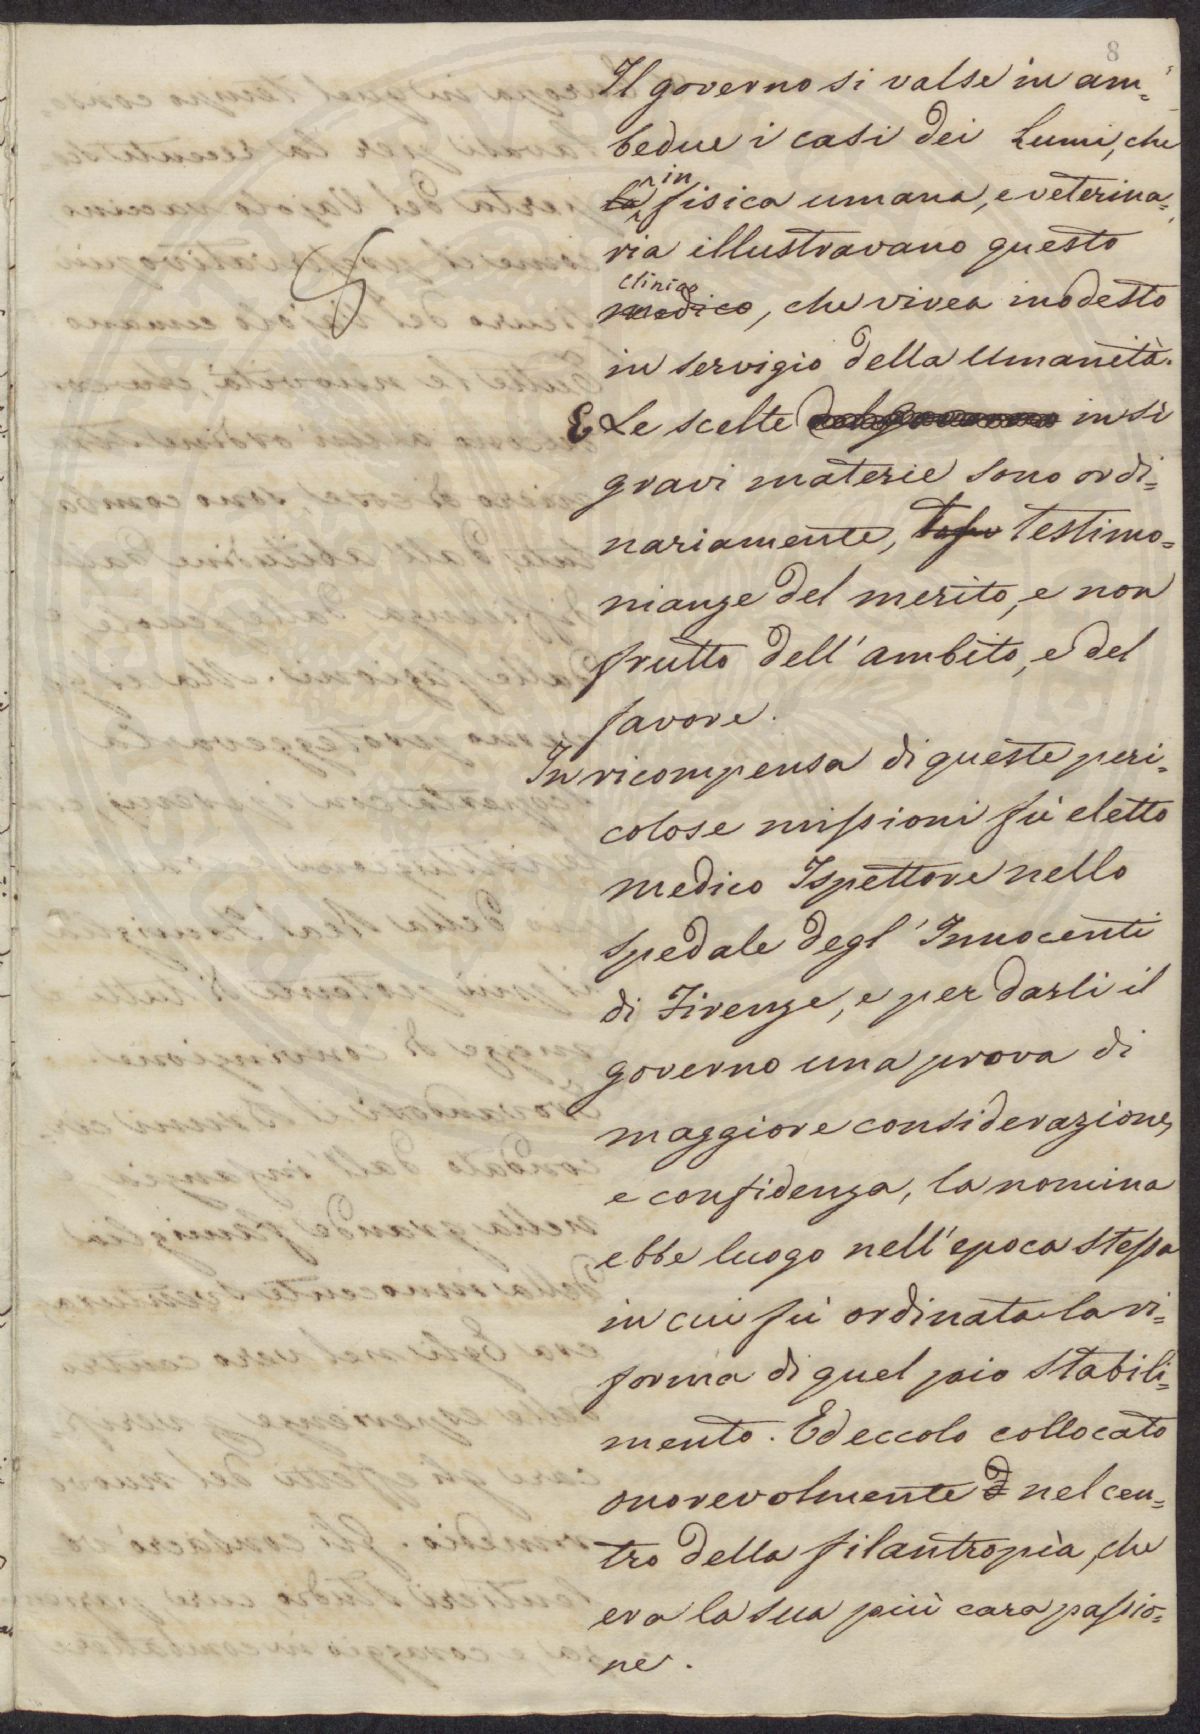 8
Il governo si valse in am=
bedue i casi dei Lumi, che
la in fisica umana, e veterina=
ria illustravano questo
clinico
medico, che vivea modesto
in servigio della Umanità.
E Le scelte del Governo in sì
gravi materie sono ordi=
nariamente, testimo=
nianze del merito, e non
frutto dell' ambito, e del
favore.
In ricompensa di queste peri=
colose missioni fù eletto
medico Ispettore nello
spedale degl' Innocenti
di Firenze, e per darli il
governo una prova di
maggiore considerazione,
e confidenza, la nomina
ebbe luogo nell' epoca stessa
in cui fù ordinata la ri=
forma di quel pio stabili=
mento. Ed eccolo collocato
onorevolmente nel cen=
tro della filantropìa, che
era la sua più cara passio=
ne.